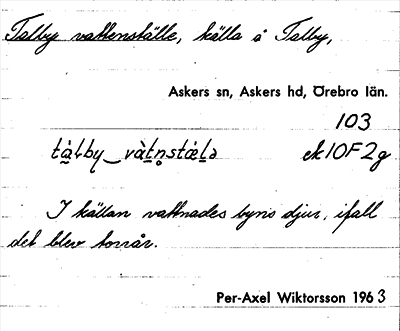 Talby vattenställe, källa å Talby,
Askers sn, Askers hd, Örebro län.
103
tàlby_vàtn̥stæ̀lə ek 10F2g
I källan vattnades byns djur, ifall
det blev torrår.
Per-Axel Wiktorsson 1963